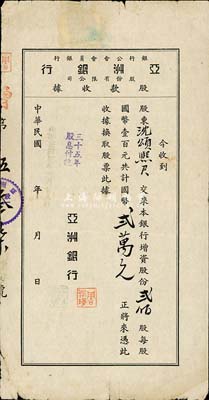 銀行公會會員銀行
股份有限公司
亞洲銀行
股款收據
今收到
股東沈頌興君交來本銀行增資股份貳佰股每股
國幣壹百元共計國幣貳萬元正將來憑此
收據換取股票此據
亞洲銀行
三十五年
股息付訖
中華民國 年 月 日
第 號